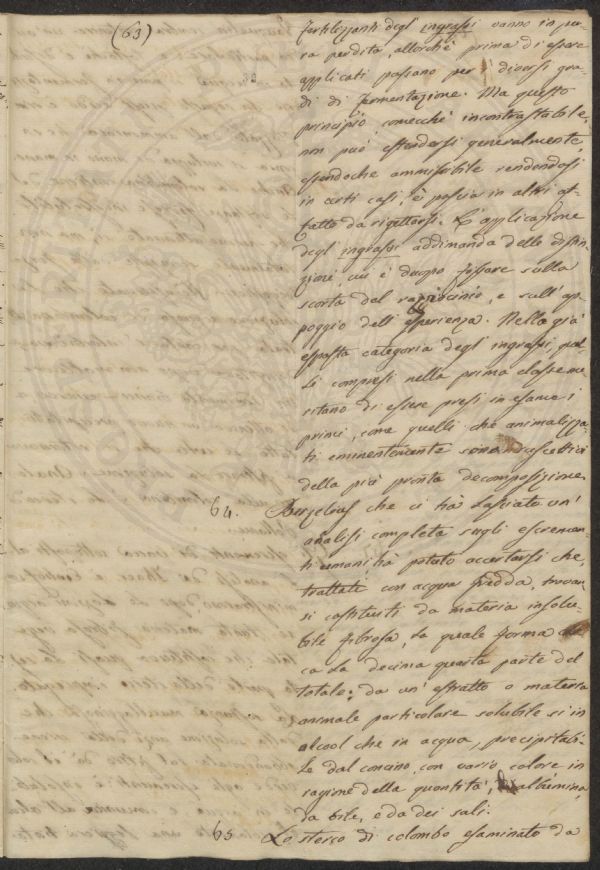 (63)
fertilizzanti degl' ingrassi vanno in pu-
ra perdita, allorchè prima di essere
applicati passano per i diversi gra-
di di fermentazione. Ma questo
principio comecchè incontrastabile,
non può estendersi generalmente,
essendochè ammissibile rendendosi
in certi casi, è poscia in altri af-
fatto da rigettarsi. L'applicazione
degl' ingrassi addimanda delle distin-
zioni, cui è duopo fissare sulla
scorta del raziocinio, e sull' ap-
poggio dell' esperienza. Nella già
esposta categoria degl' ingrassi, quel-
li compresi nella prima classe me-
ritano di essere presi in esame i
primi, come quelli che animalizza-
ti eminentemente sono suscettivi
della più pronta decomposizione.
64. Berzelius che ci hà lasciato un'
analisi completa sugli escremen-
ti umani hà potuto accertarsi che,
trattati con acqua fredda, trovan-
si costituiti da materia insolu-
bile fibrosa, la quale forma cir-
ca la decima quarta parte del
totale; da un' estratto o materia
animale particolare solubile sì in
alcool che in acqua, precipitabi-
le dal concino, con vario colore in
ragione della quantità, da albumina,
da bile, e da dei sali.
65 Lo sterco di colombo esaminato da